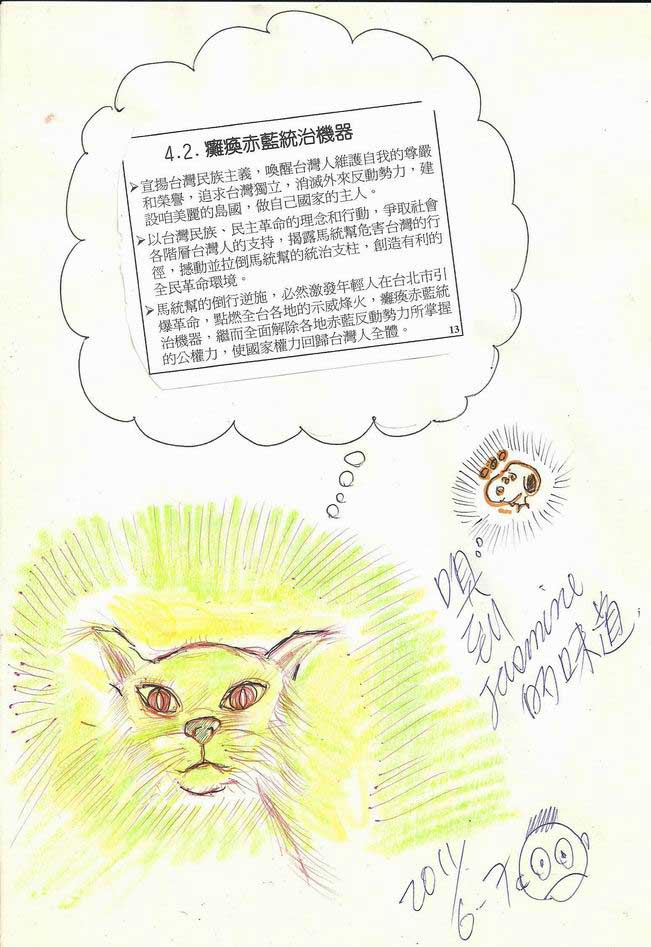 4.2. 癱瘓赤藍統治機器
➢宣揚台灣民族主義，喚醒台灣人維護自我的尊嚴
和榮譽，追求台灣獨立，消滅外來反動勢力，建
設咱美麗的島國，做自己國家的主人。
➢以台灣民族、民主革命的理念和行動，爭取社會
各階層台灣人的支持，揭露馬統幫危害台灣的行
徑，撼動並拉倒馬統幫的統治支柱，創造有利的
全民革命環境。
➢馬統幫的倒行逆施，必然激發年輕人在台北市引
爆革命，點燃全台各地的示威烽火，癱瘓赤藍統
治機器，繼而全面解除各地赤藍反動勢力所掌握
的公權力，使國家權力回歸台灣人全體。
13
嗅到
Jasmine
的味道
2011/
6-7